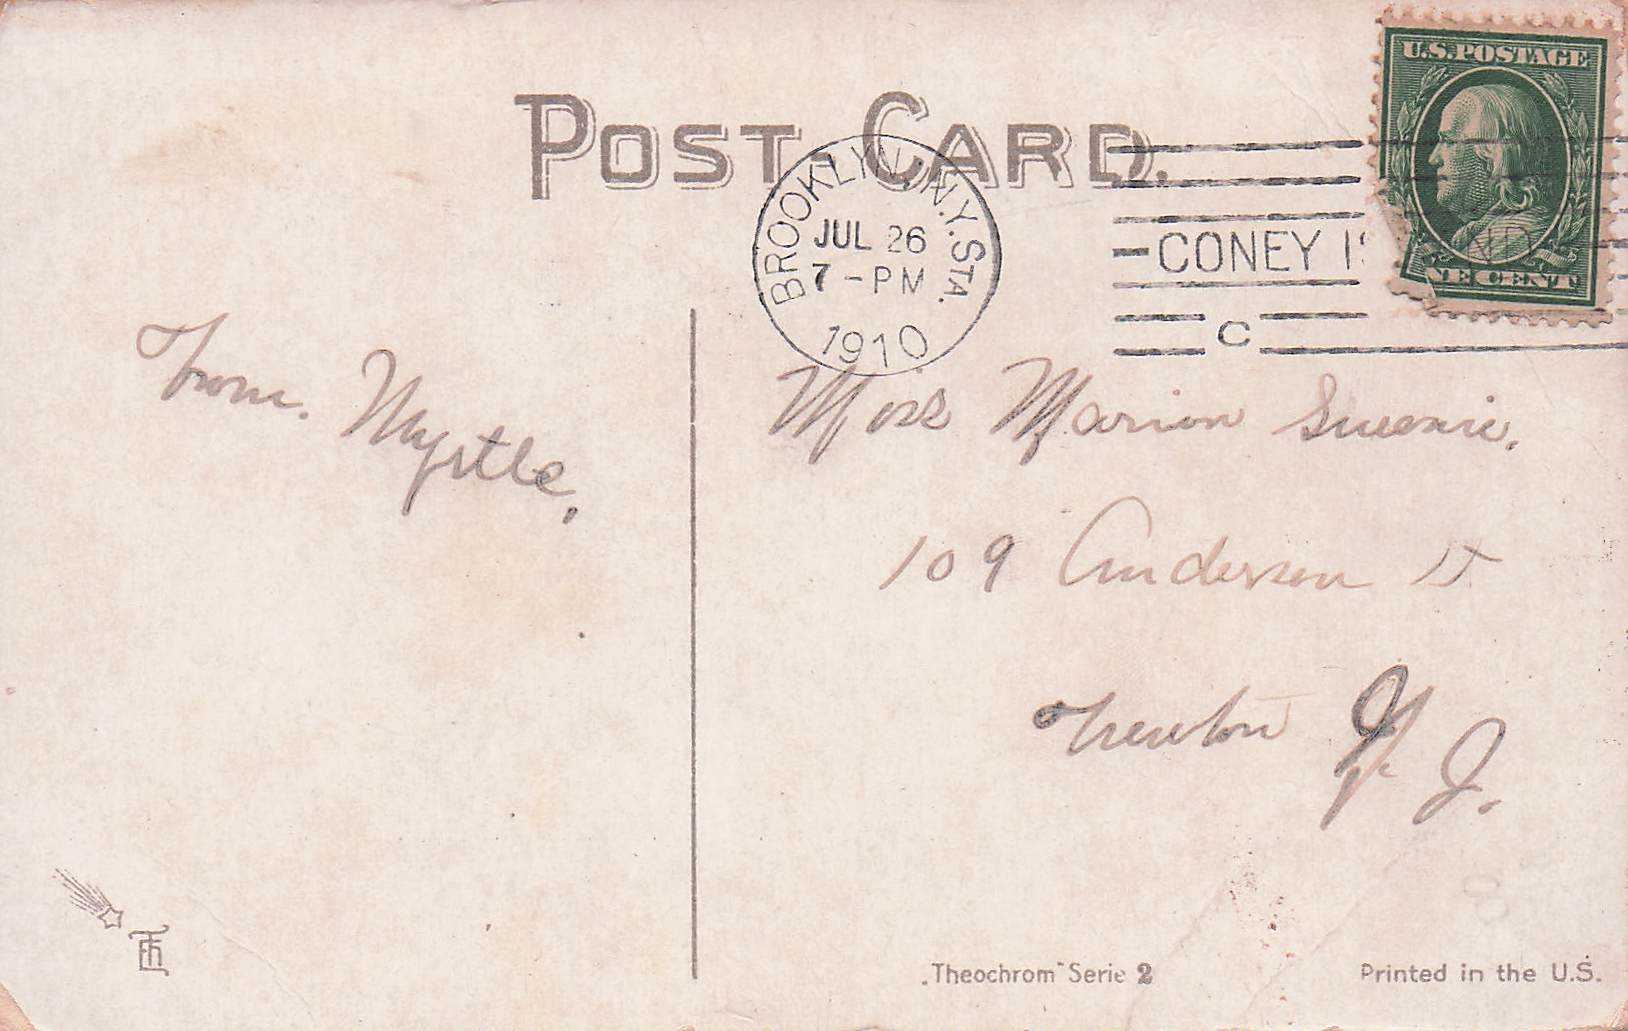 POST CARD.
U.S.POSTAGE
NE CENT
BROOKLYN, N.Y. STA.
JUL 26
7-PM
1910
CONEY IS
ND
C
From. Myrtle.
Miss Marion Sweenie.
109 Anderson St
Trenton N. J.
„Theochrom" Serie 2
Printed in the U.S.